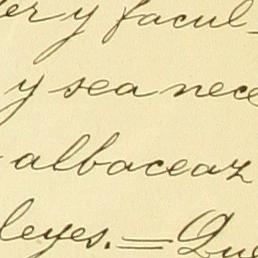 y facul-
y sea nece
albaceaz
leyes.=Que